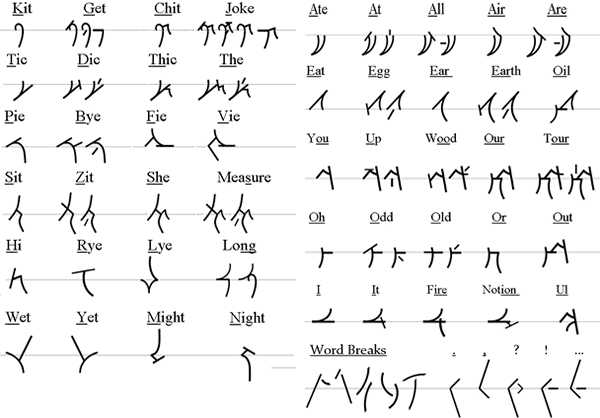 Kit Get Chit Joke
Tic Dic Thic The
Pie Bye Fie Vie
Sit Zit She Measure
Hi Rye Lye Long
Wet Yet Might Night
Ate At All Air Are
Eat Egg Ear Earth Oil
You Up Wood Our Tour
Oh Odd Old Or Out
I It Fire Notion Ul
Word Breaks . , ? ! ...